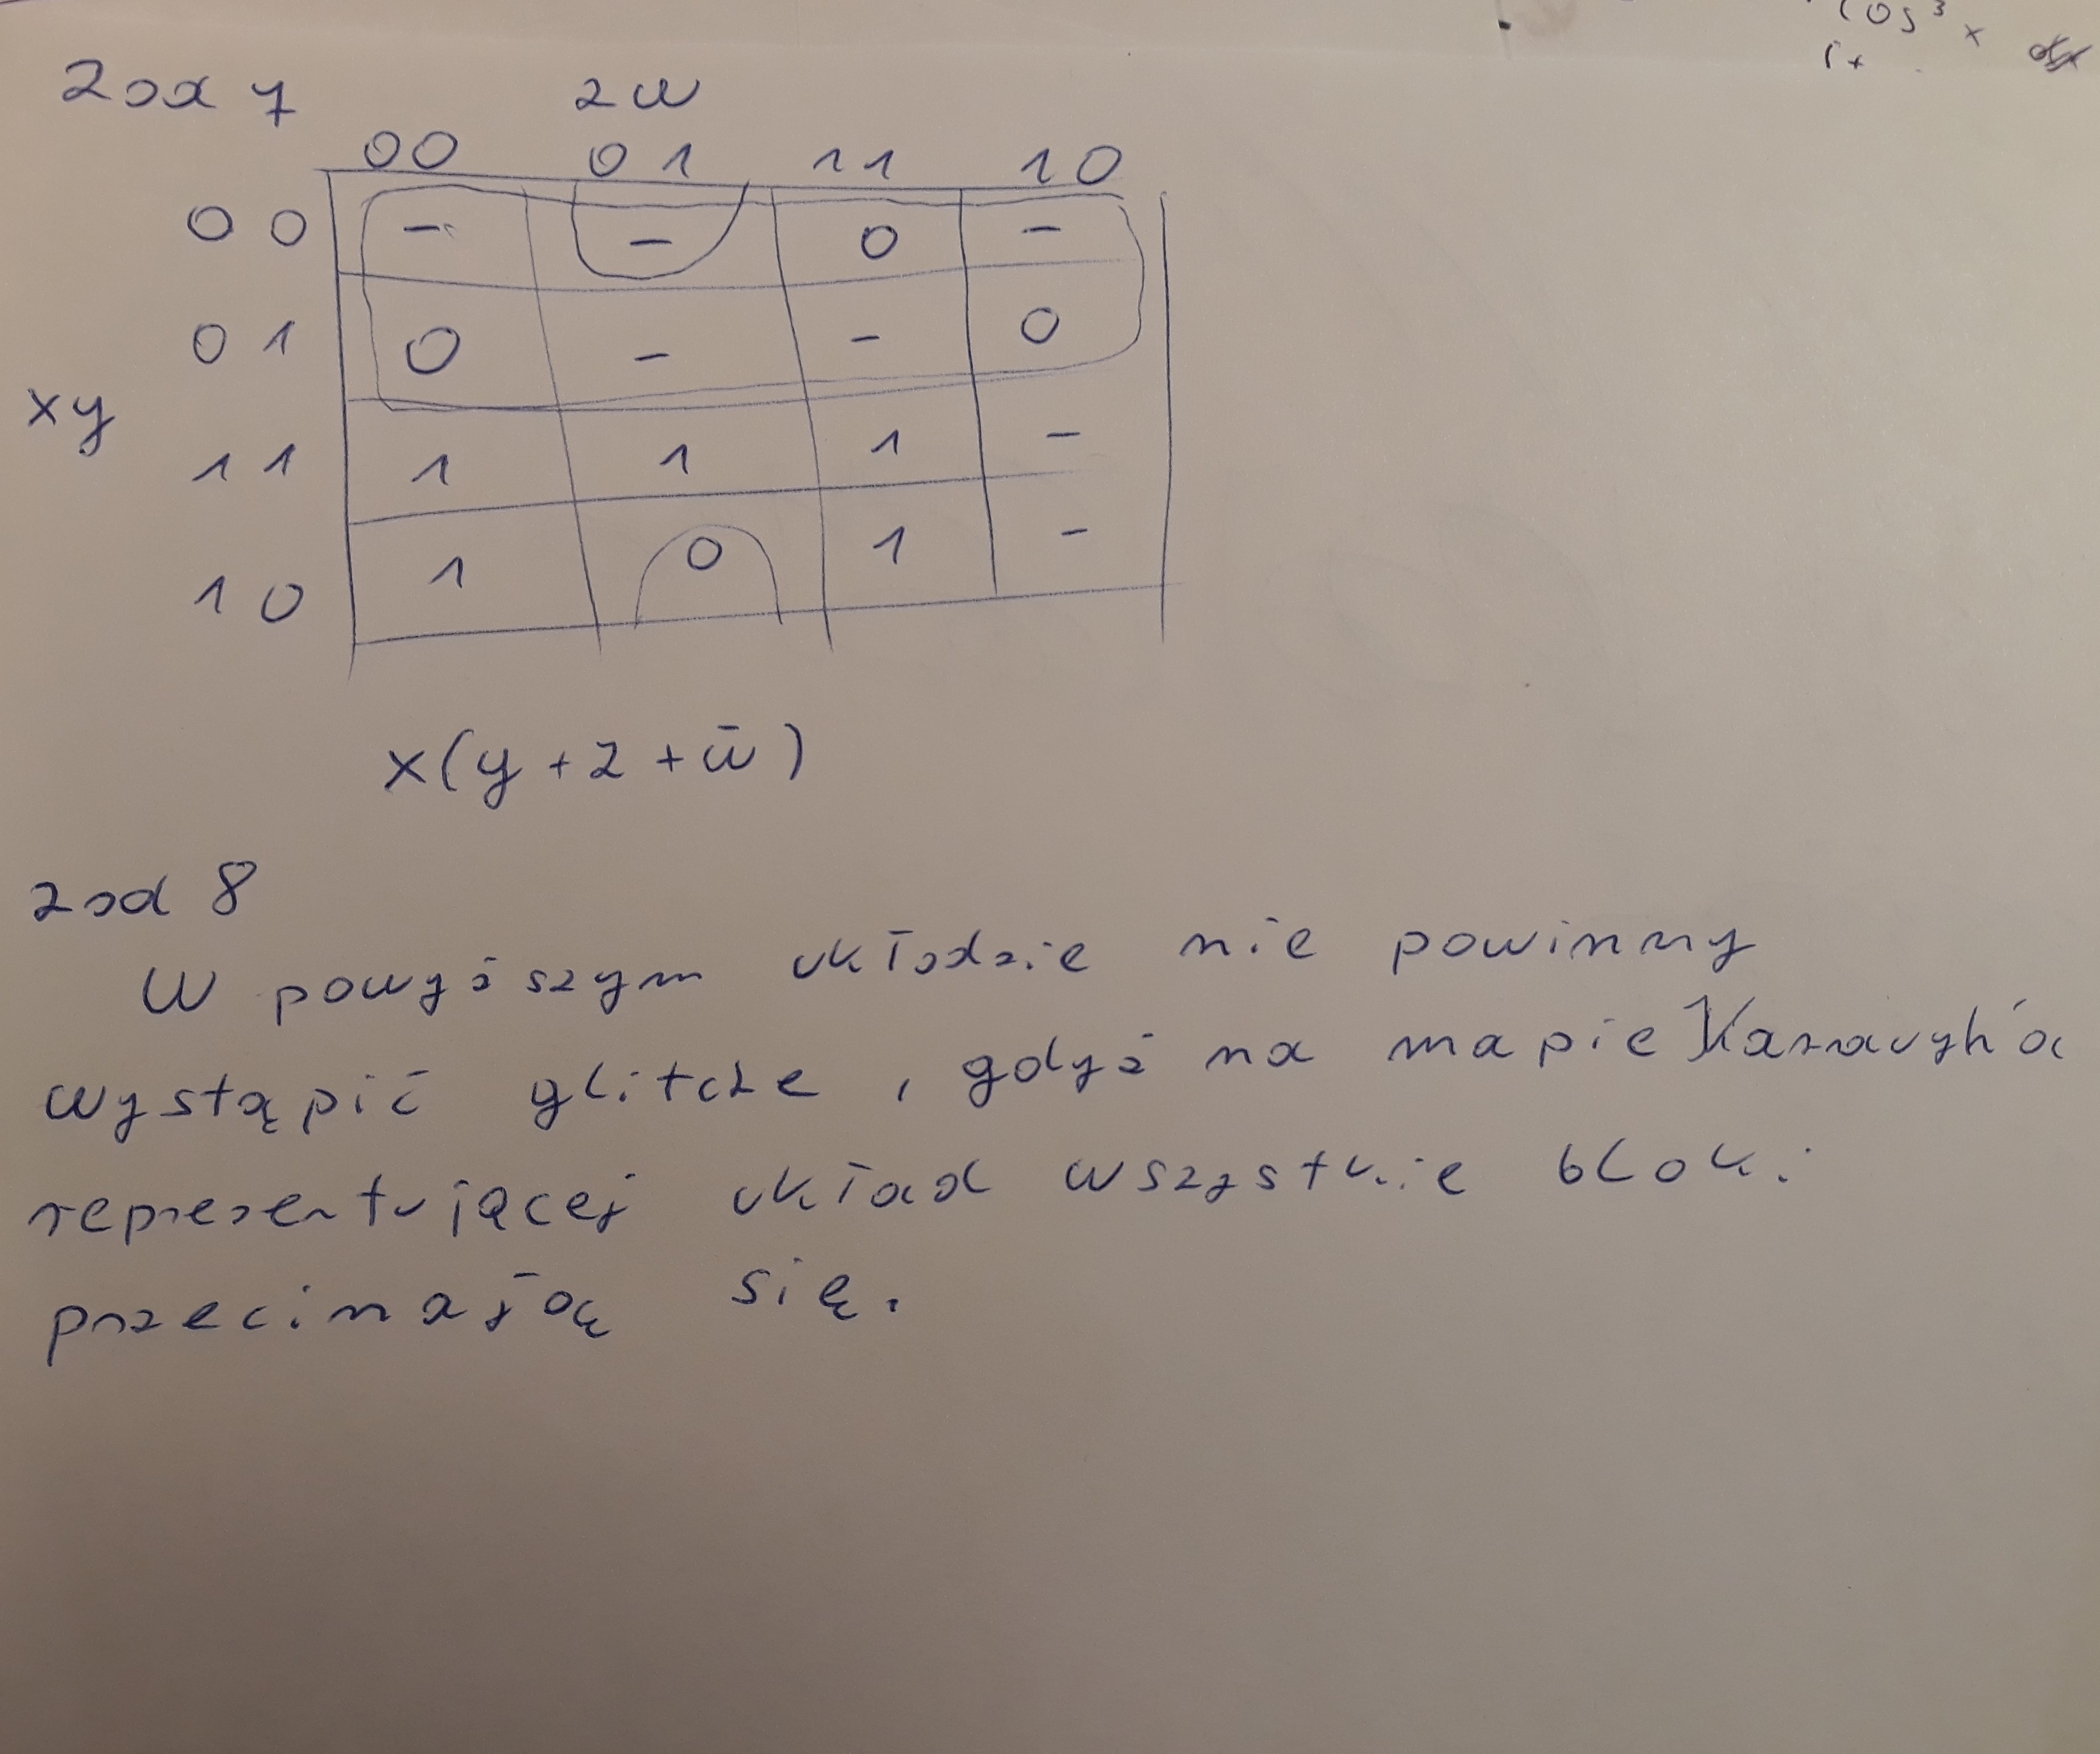 cos³ x dx
zad 7 zw
00 01 11 10
00 - - 0 -
01 0 - - 0
xy
11 1 1 1 -
10 1 0 1 -
x(y + z + w̄)
zad 8
W powyższym układzie nie powinny
wystąpić glitche, gdyż na mapie Karnaugh'a
reprezentującej układ wszystkie bloki
przecinają się.